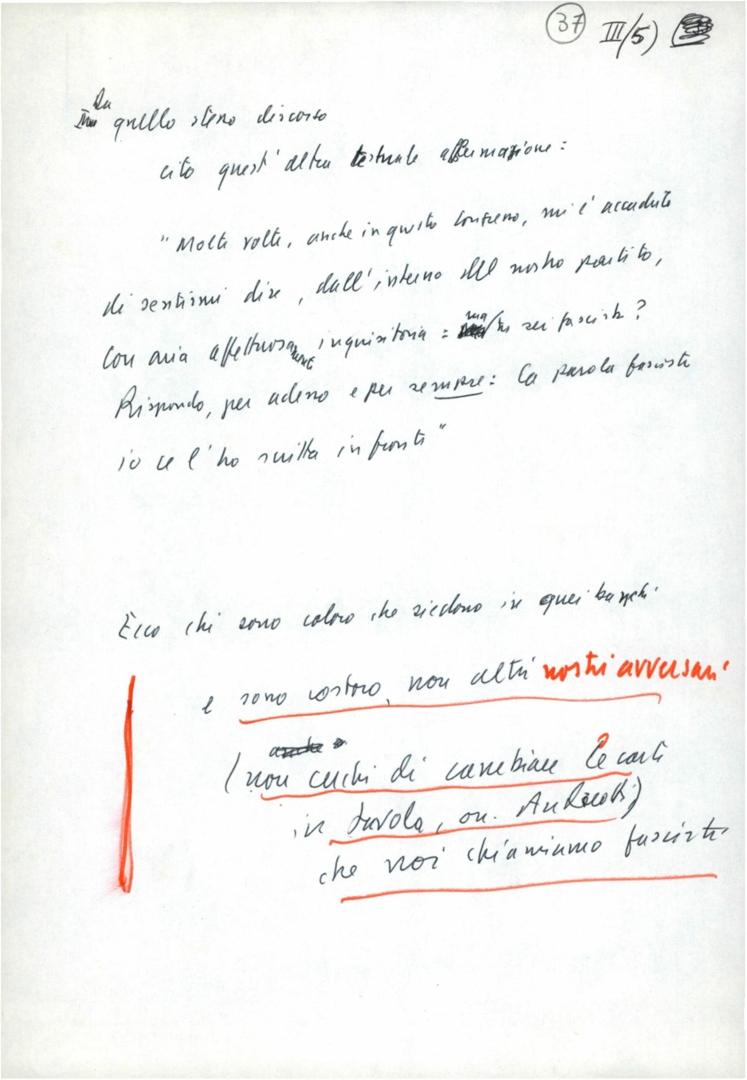 37 III/5)
Da quello stesso discorso
cito quest'altra testuale affermazione:
"Molte volte, anche in questo Congresso, mi è accaduto
di sentirmi dire, dall'interno del nostro partito,
con aria affettuosamente inquisitoria: ma tu sei fascista?
Rispondo, per adesso e per sempre: la parola fascista
io ce l'ho scritta in fronte"
Ecco chi sono coloro che siedono in quei banchi
e sono costoro, non altri nostri avversari
(non cerchi di cambiare le carte
in tavola, on. Andreotti)
che noi chiamiamo fascisti